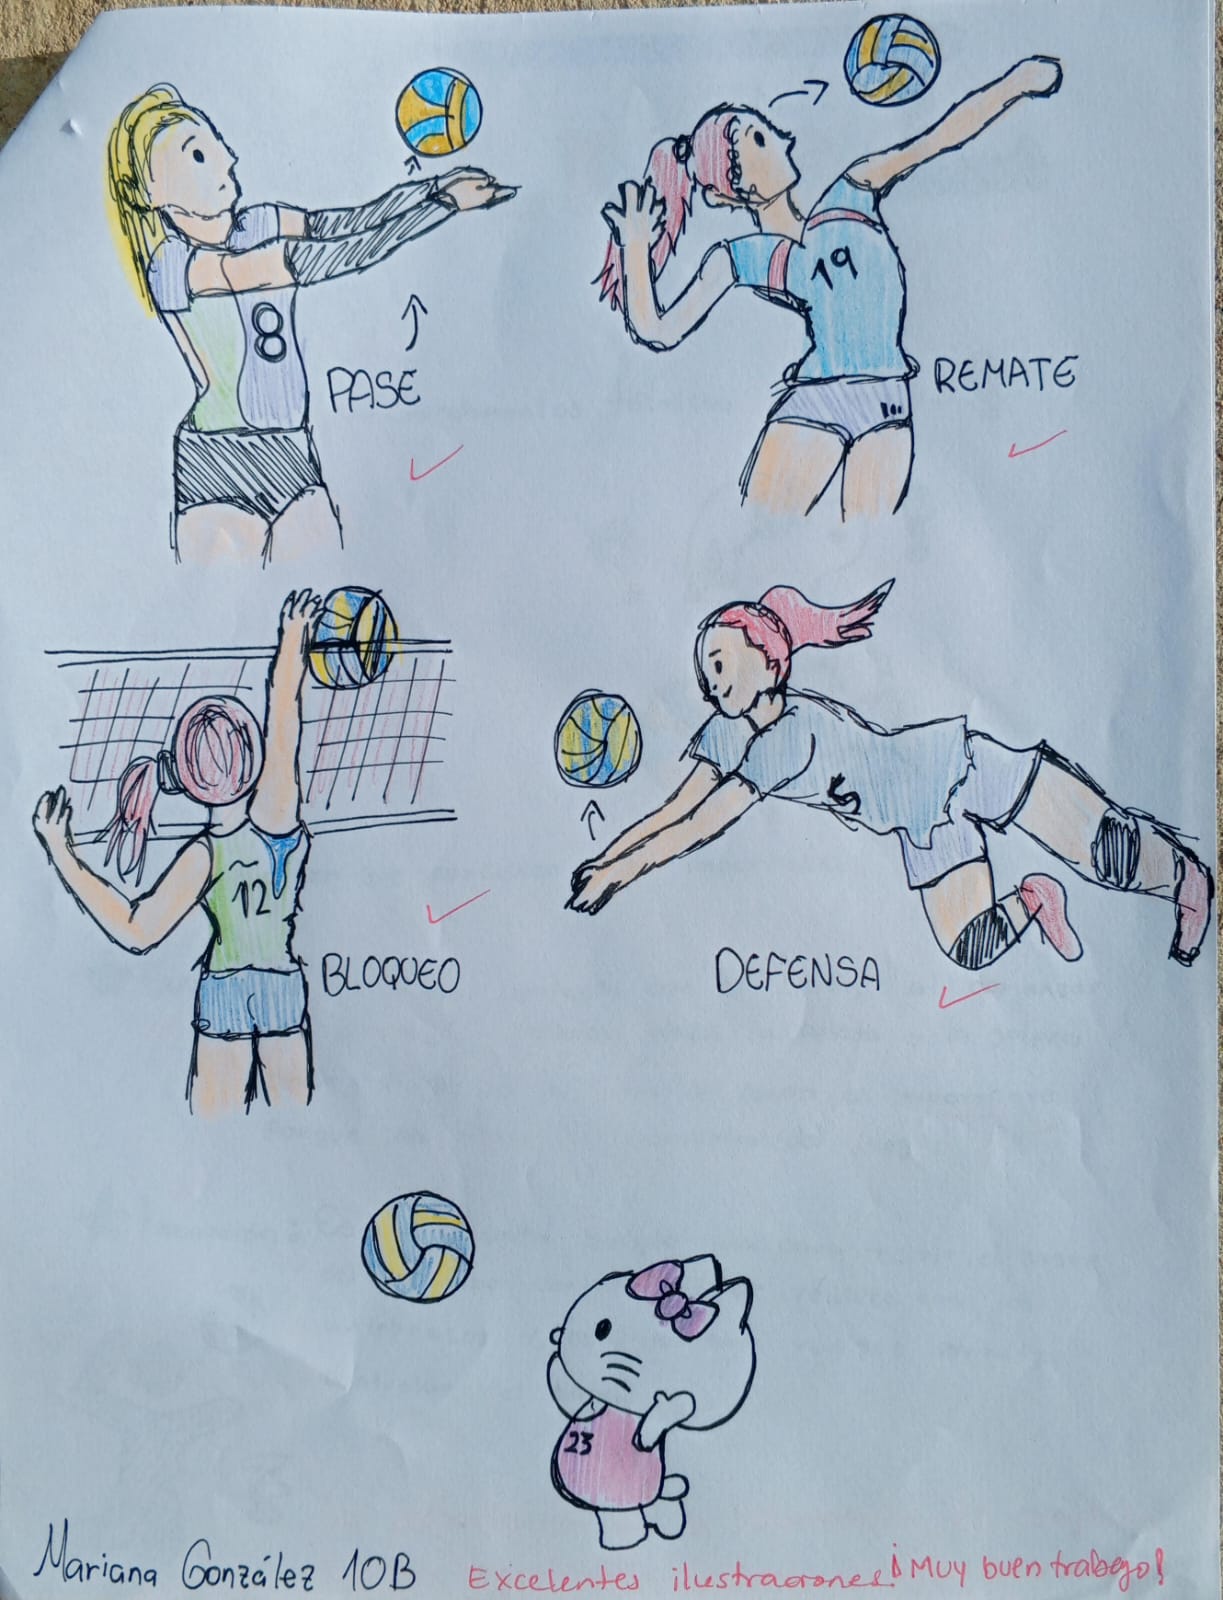 8
PASE
19
REMATE
12
BLOQUEO
5
DEFENSA
23
Mariana González 10B
Excelentes ilustraciones! ¡Muy buen trabajo!